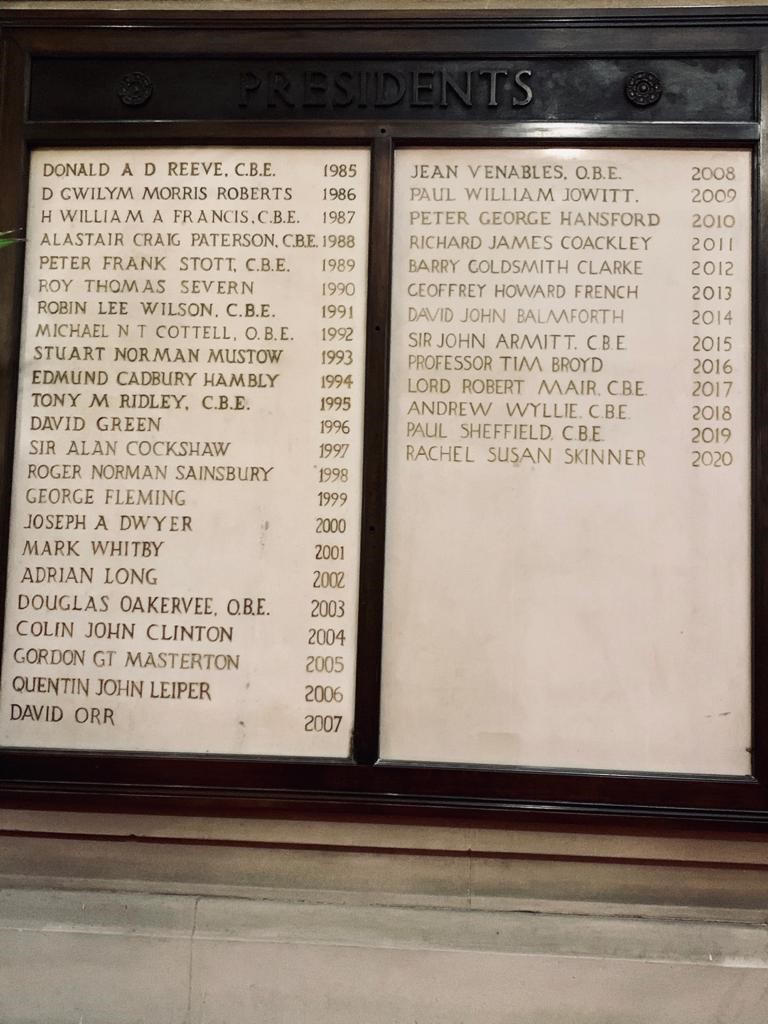 PRESIDENTS
DONALD A D REEVE, C.B.E. 1985
D GWILYM MORRIS ROBERTS 1986
H WILLIAM A FRANCIS, C.B.E. 1987
ALASTAIR CRAIG PATERSON, C.B.E. 1988
PETER FRANK STOTT, C.B.E. 1989
ROY THOMAS SEVERN 1990
ROBIN LEE WILSON, C.B.E. 1991
MICHAEL N T COTTELL, O.B.E. 1992
STUART NORMAN MUSTOW 1993
EDMUND CADBURY HAMBLY 1994
TONY M RIDLEY, C.B.E. 1995
DAVID GREEN 1996
SIR ALAN COCKSHAW 1997
ROGER NORMAN SAINSBURY 1998
GEORGE FLEMING 1999
JOSEPH A DWYER 2000
MARK WHITBY 2001
ADRIAN LONG 2002
DOUGLAS OAKERVEE, O.B.E. 2003
COLIN JOHN CLINTON 2004
GORDON GT MASTERTON 2005
QUENTIN JOHN LEIPER 2006
DAVID ORR 2007
JEAN VENABLES, O.B.E. 2008
PAUL WILLIAM JOWITT. 2009
PETER GEORGE HANSFORD 2010
RICHARD JAMES COACKLEY 2011
BARRY GOLDSMITH CLARKE 2012
GEOFFREY HOWARD FRENCH 2013
DAVID JOHN BALMFORTH 2014
SIR JOHN ARMITT. C.B.E. 2015
PROFESSOR TIM BROYD 2016
LORD ROBERT MAIR. C.B.E. 2017
ANDREW WYLLIE. C.B.E. 2018
PAUL SHEFFIELD. C.B.E. 2019
RACHEL SUSAN SKINNER 2020